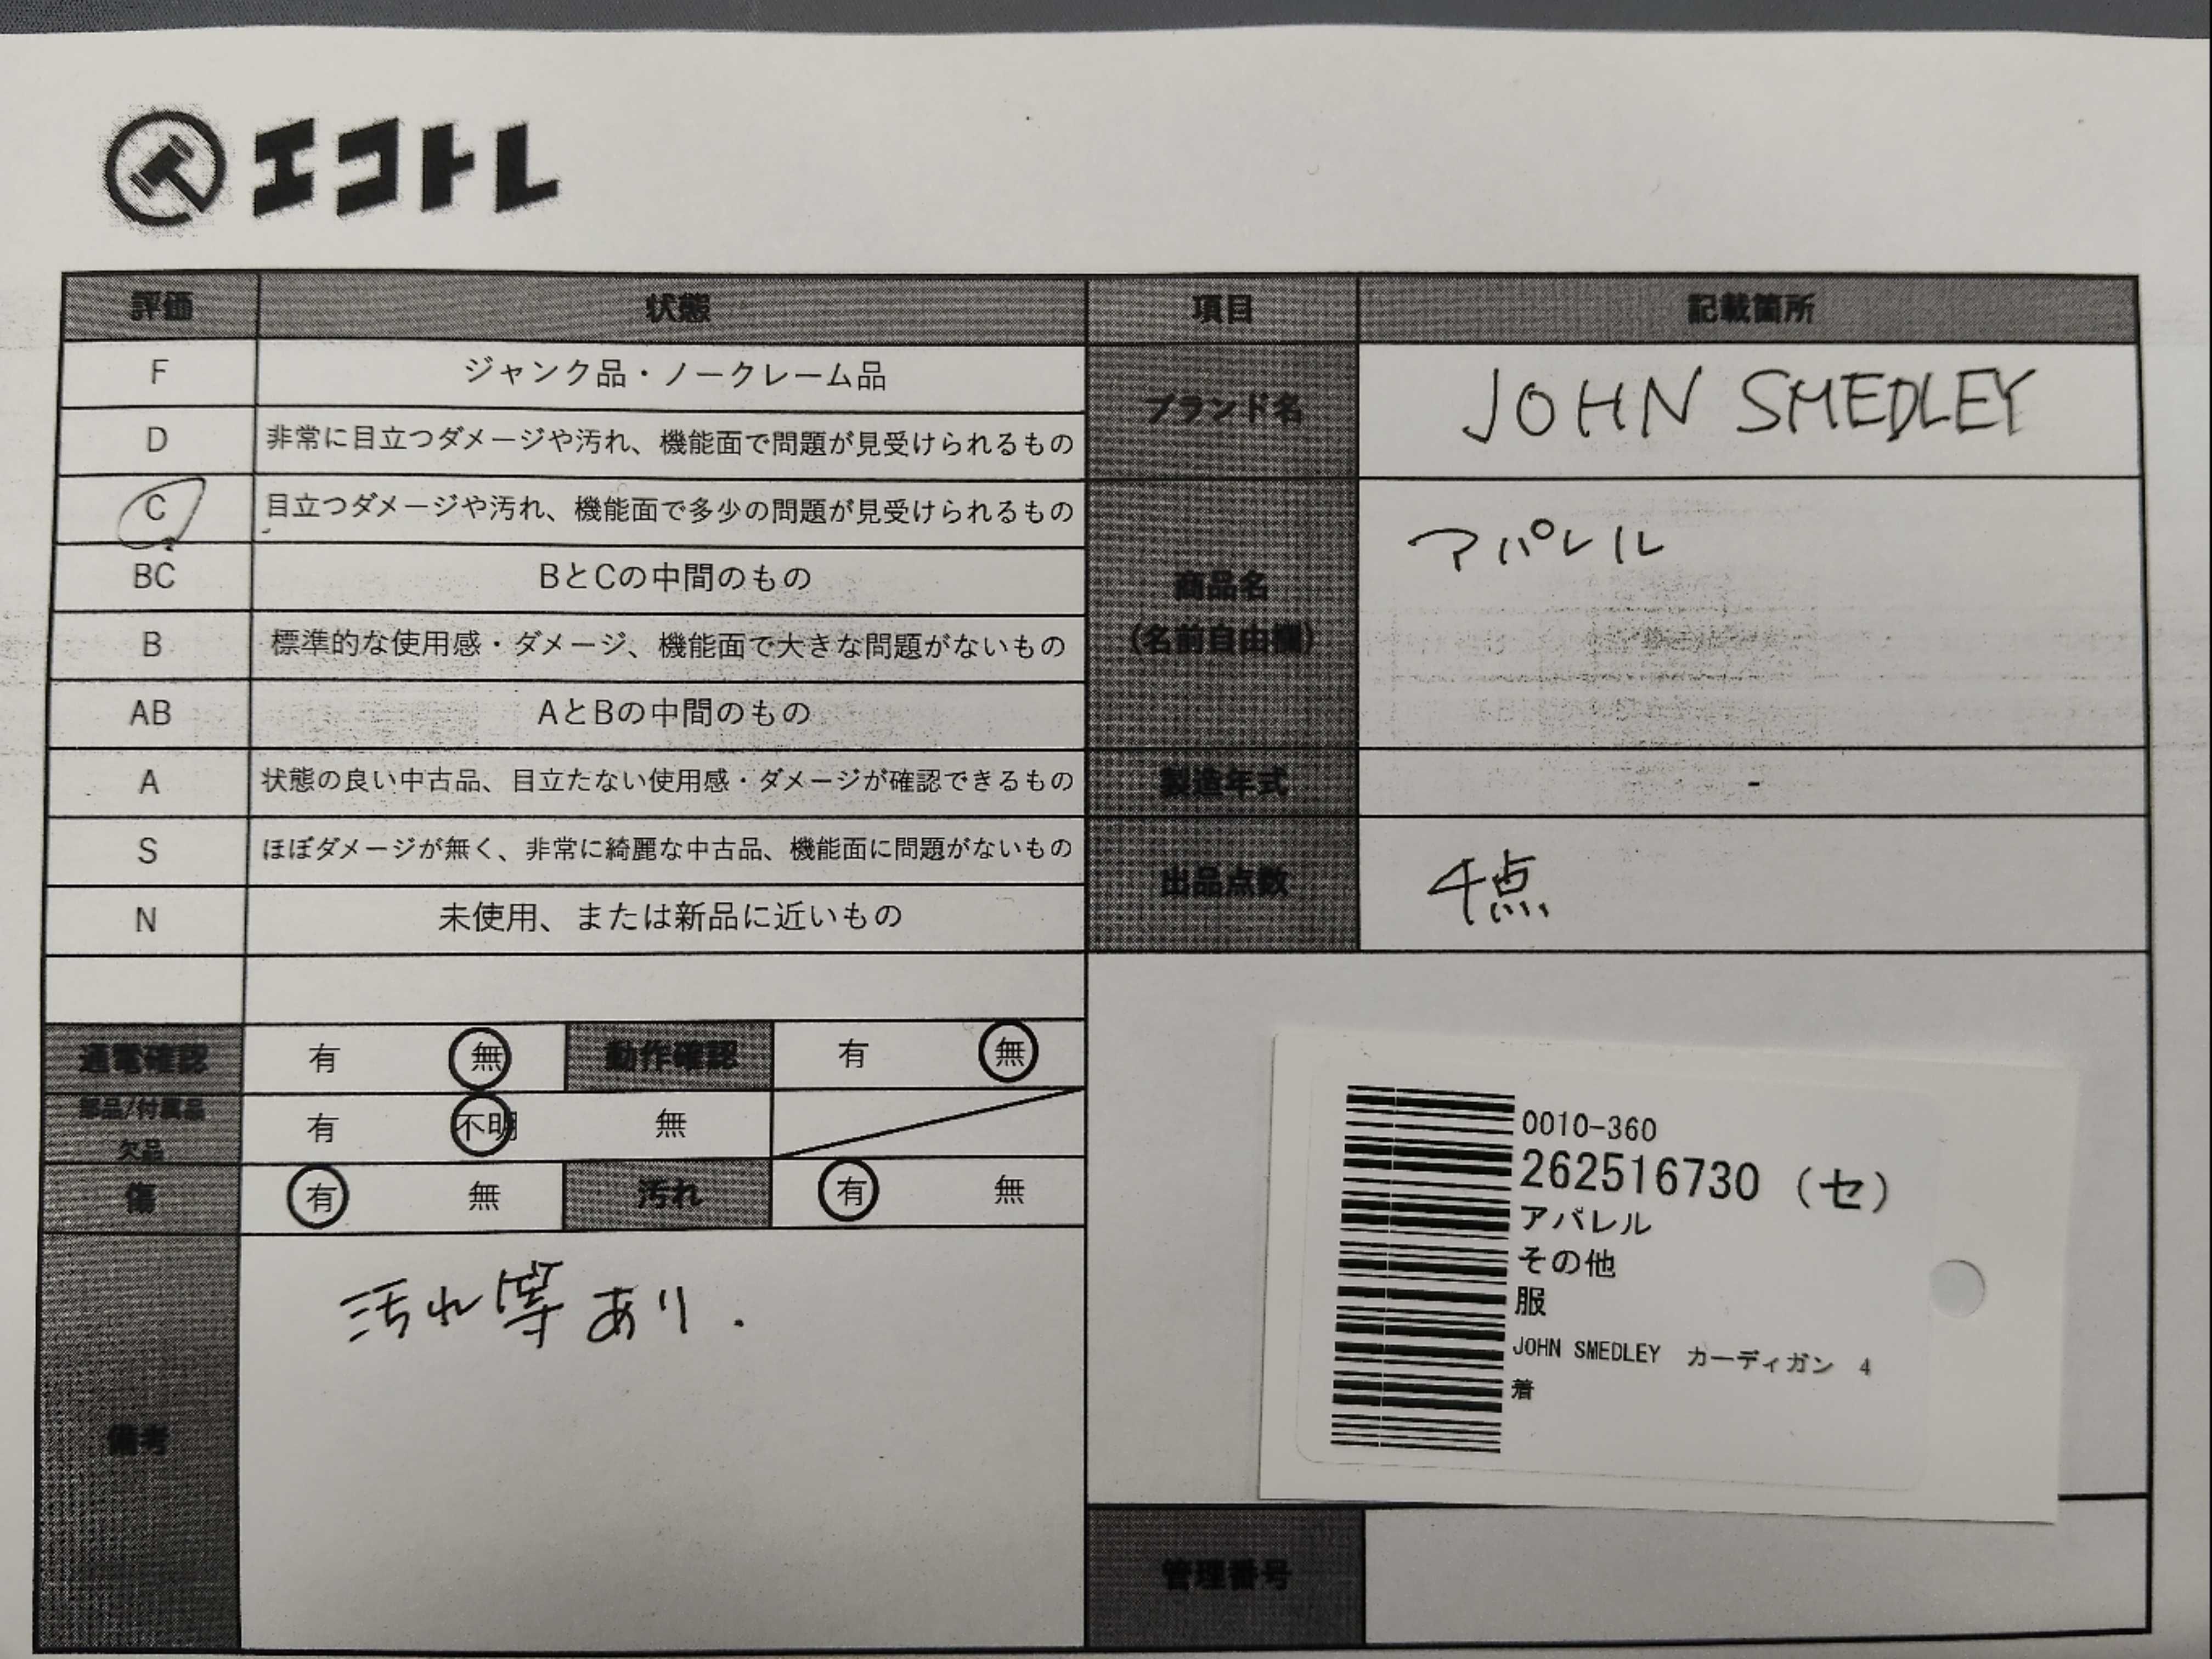 エコトレ
評価 状態 項目 記載箇所
F ジャンク品・ノークレーム品
D 非常に目立つダメージや汚れ、機能面で問題が見受けられるもの
C 目立つダメージや汚れ、機能面で多少の問題が見受けられるもの
BC BとCの中間のもの
B 標準的な使用感・ダメージ、機能面で大きな問題がないもの
AB AとBの中間のもの
A 状態の良い中古品、目立たない使用感・ダメージが確認できるもの
S ほぼダメージが無く、非常に綺麗な中古品、機能面に問題がないもの
N 未使用、または新品に近いもの
ブランド名 JOHN SMEDLEY
商品名
(名前自由欄)
アパレル
製造年式 -
出品点数 4点
通電確認 有 無 動作確認 有 無
部品/付属品
欠品
有 不明 無
傷 有 無 汚れ 有 無
備考 汚れ等あり.
0010-360
262516730 (セ)
アパレル
その他
服
JOHN SMEDLEY カーディガン 4
着
管理番号